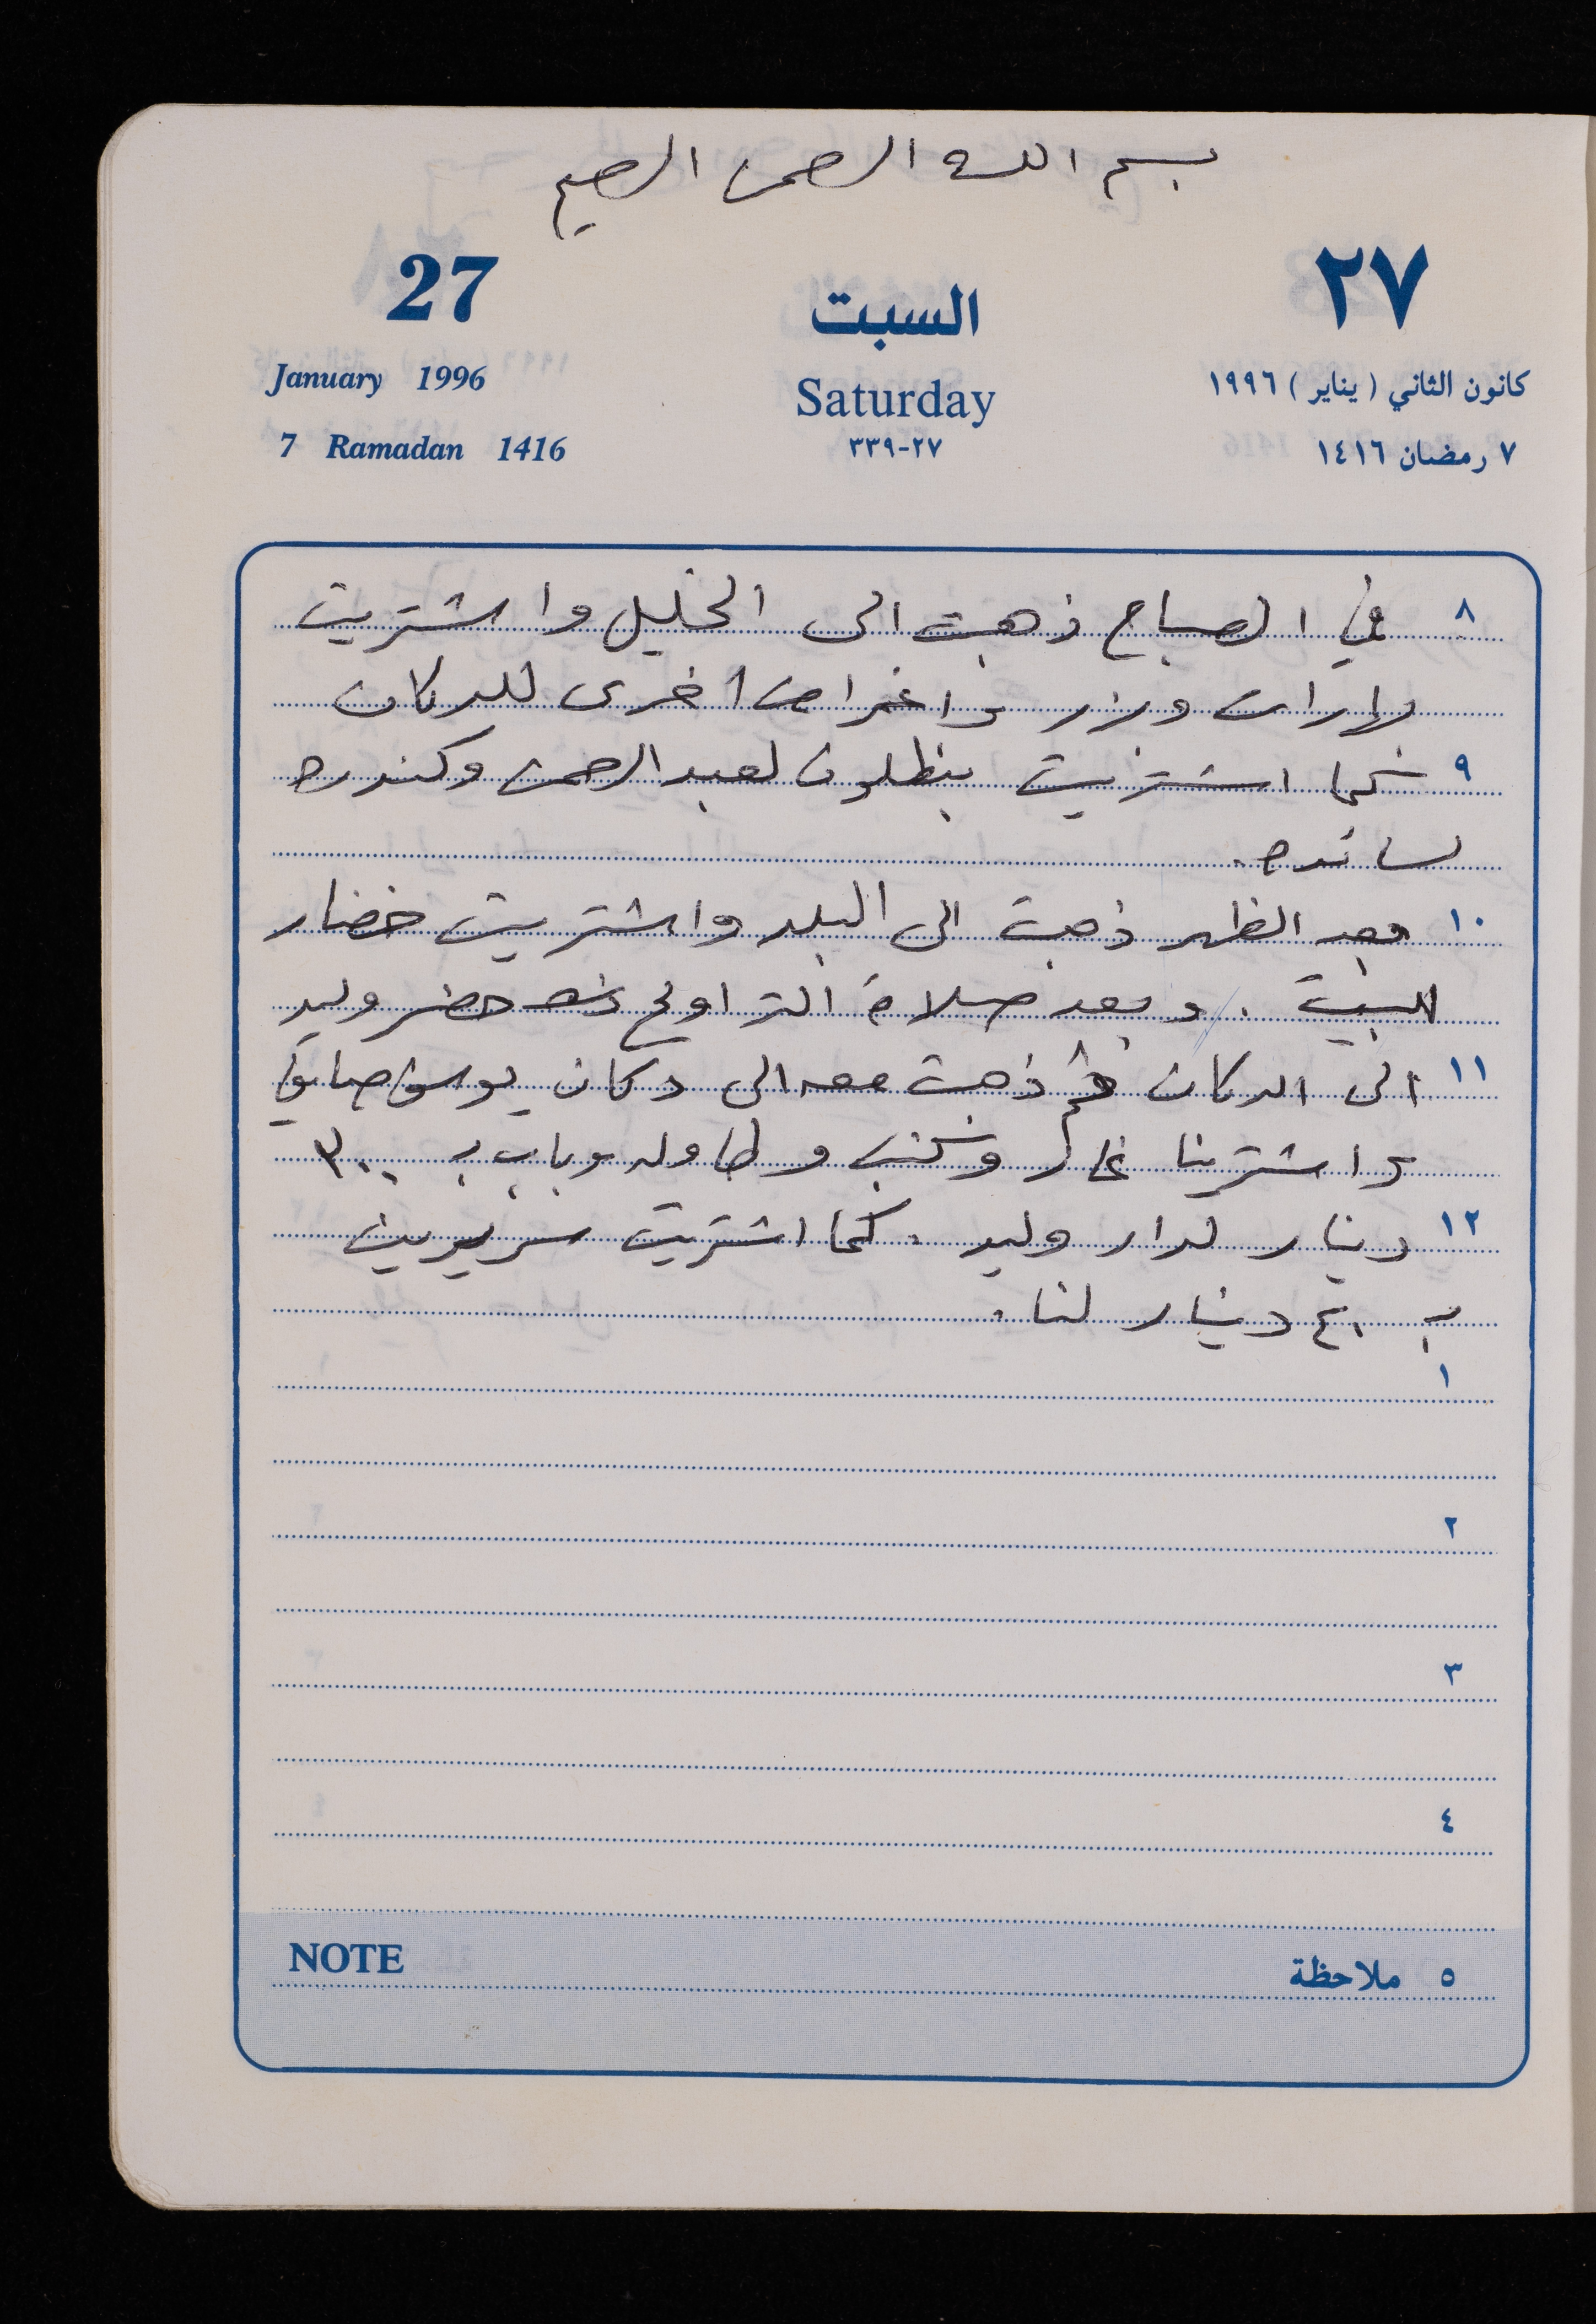 بسم الله الرحمن الرحيم
27 السبت ٢٧
January 1996 Saturday كانون الثاني (يناير) ١٩٩٦
7 Ramadan 1416 ٢٧-٣٣٩ ٧ رمضان ١٤١٦
٨ في الصباح ذهبت الى الخليل واشتريت
بهارات وبزر واغراض أخرى للدكان
٩ كما اشتريت بنطلون لعبد الرحمن وكندره
لسائده.
١٠ بعد الظهر ذهبت الى البلد واشتريت خضار
للبيت . وبعد صلاة التراويح حضر وليد
١١ الى الدكان ثم ذهبت معه الى دكان يوسف
واشترينا غاز وكنب وطاوله وباب ب ٣٠٠
١٢ دينار لدار وليد . كما اشتريت سريرين
ب ٤٠ دينار لنا .
١
٢
٣
٤
NOTE ٥ ملاحظة